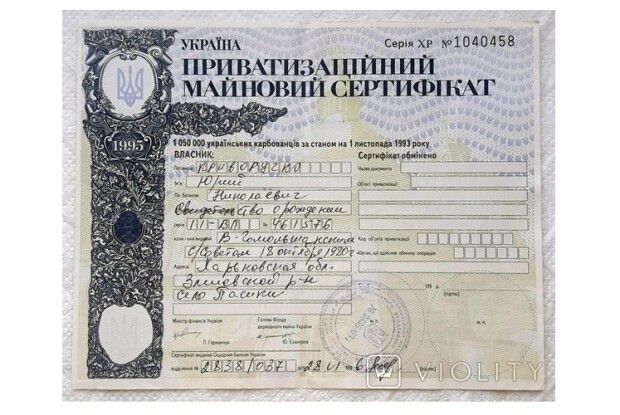 УКРАЇНА
Серія ХР №1040458
ПРИВАТИЗАЦІЙНИЙ
МАЙНОВИЙ СЕРТИФІКАТ
1995
1 050 000 українських карбованців за станом на 1 листопада 1993 року
ВЛАСНИК:
Прізвище Криворучко
Ім'я Юрий
По батькові Николаевич
Свидетельство о рождении
серія ІІІ-ВЛ № 461576
коли і ким видано В-Гомольшанским
с/Советом 18 октября 1980г
Адреса Харьковская обл.
Змиевской р-н
село Пасики
Міністр фінансів України
П. Германчук
Голова Фонду
державного майна України
Ю. Єхануров
м.п.
Сертифікат виданий Ощадним банком України
відділення № 2838/037 28 VI 6
Сертифікат обміняно
Назва документа
Об'єкт приватизації
Код об'єкта приватизації
Орган, що здійснив обмінну операцію
199 р.
(підпис)
м.п.
(підпис)
VIOLITY